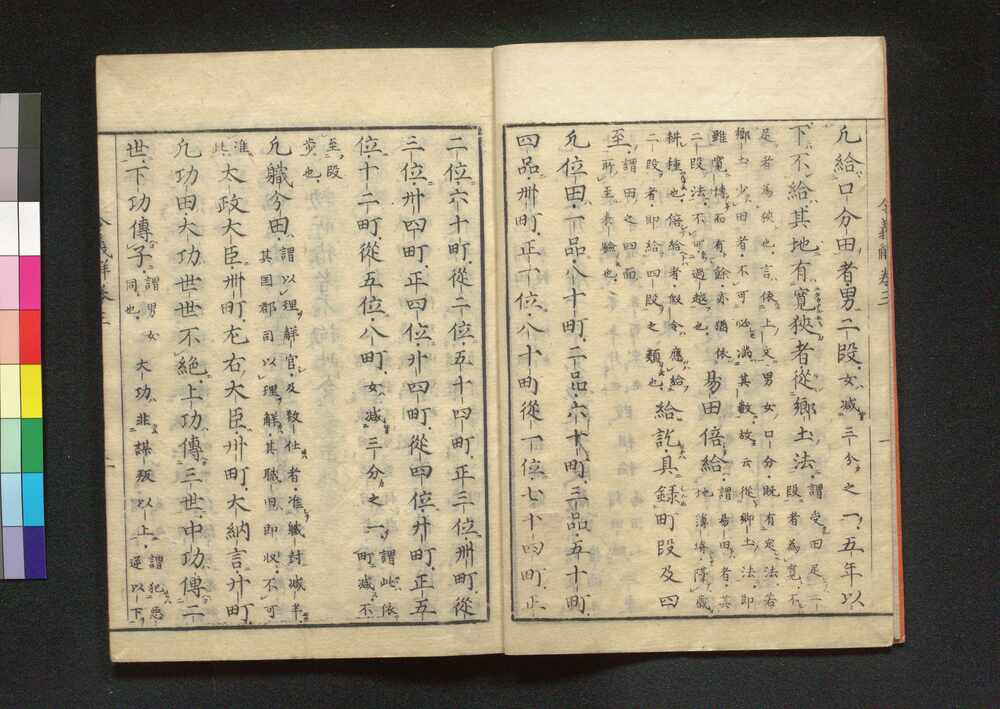 凢給口分田者男二段女減三分之一五年以
下不給其地有寛狹者從郷土法謂受田足二段者為寛不
足者為狹也言依上文男女口分既有定法若
郷土少田者不可必満其數故云從郷土法即
雖寛博而有餘亦猶依二段法不可過越也易田倍給謂易田者其地薄塉隔歳
耕種也倍給者假令應給二段者即給四段之類也給訖具録町段及四
至謂田之四面所至表驗也
凢位田一品八十町二品六十町三品五十町
四品卌町正一位八十町從一位七十四町正
二位六十町從二位五十四町正三位卌町從
三位卅四町正四位廿四町從四位廿町正五
位十二町從五位八町女減三分之一謂此依町減不
至段歩也
凢職分田謂以理解官及致仕者准職封減半
其国郡司以理解其職田即收不可准此太政大臣卌町左右大臣卅町大納言廿町
凢功田大功世世不絶上功傳三世中功傳二
世下功傳子謂男女同也大功非謀叛以上謂犯惡逆以下
令義解卷三
一